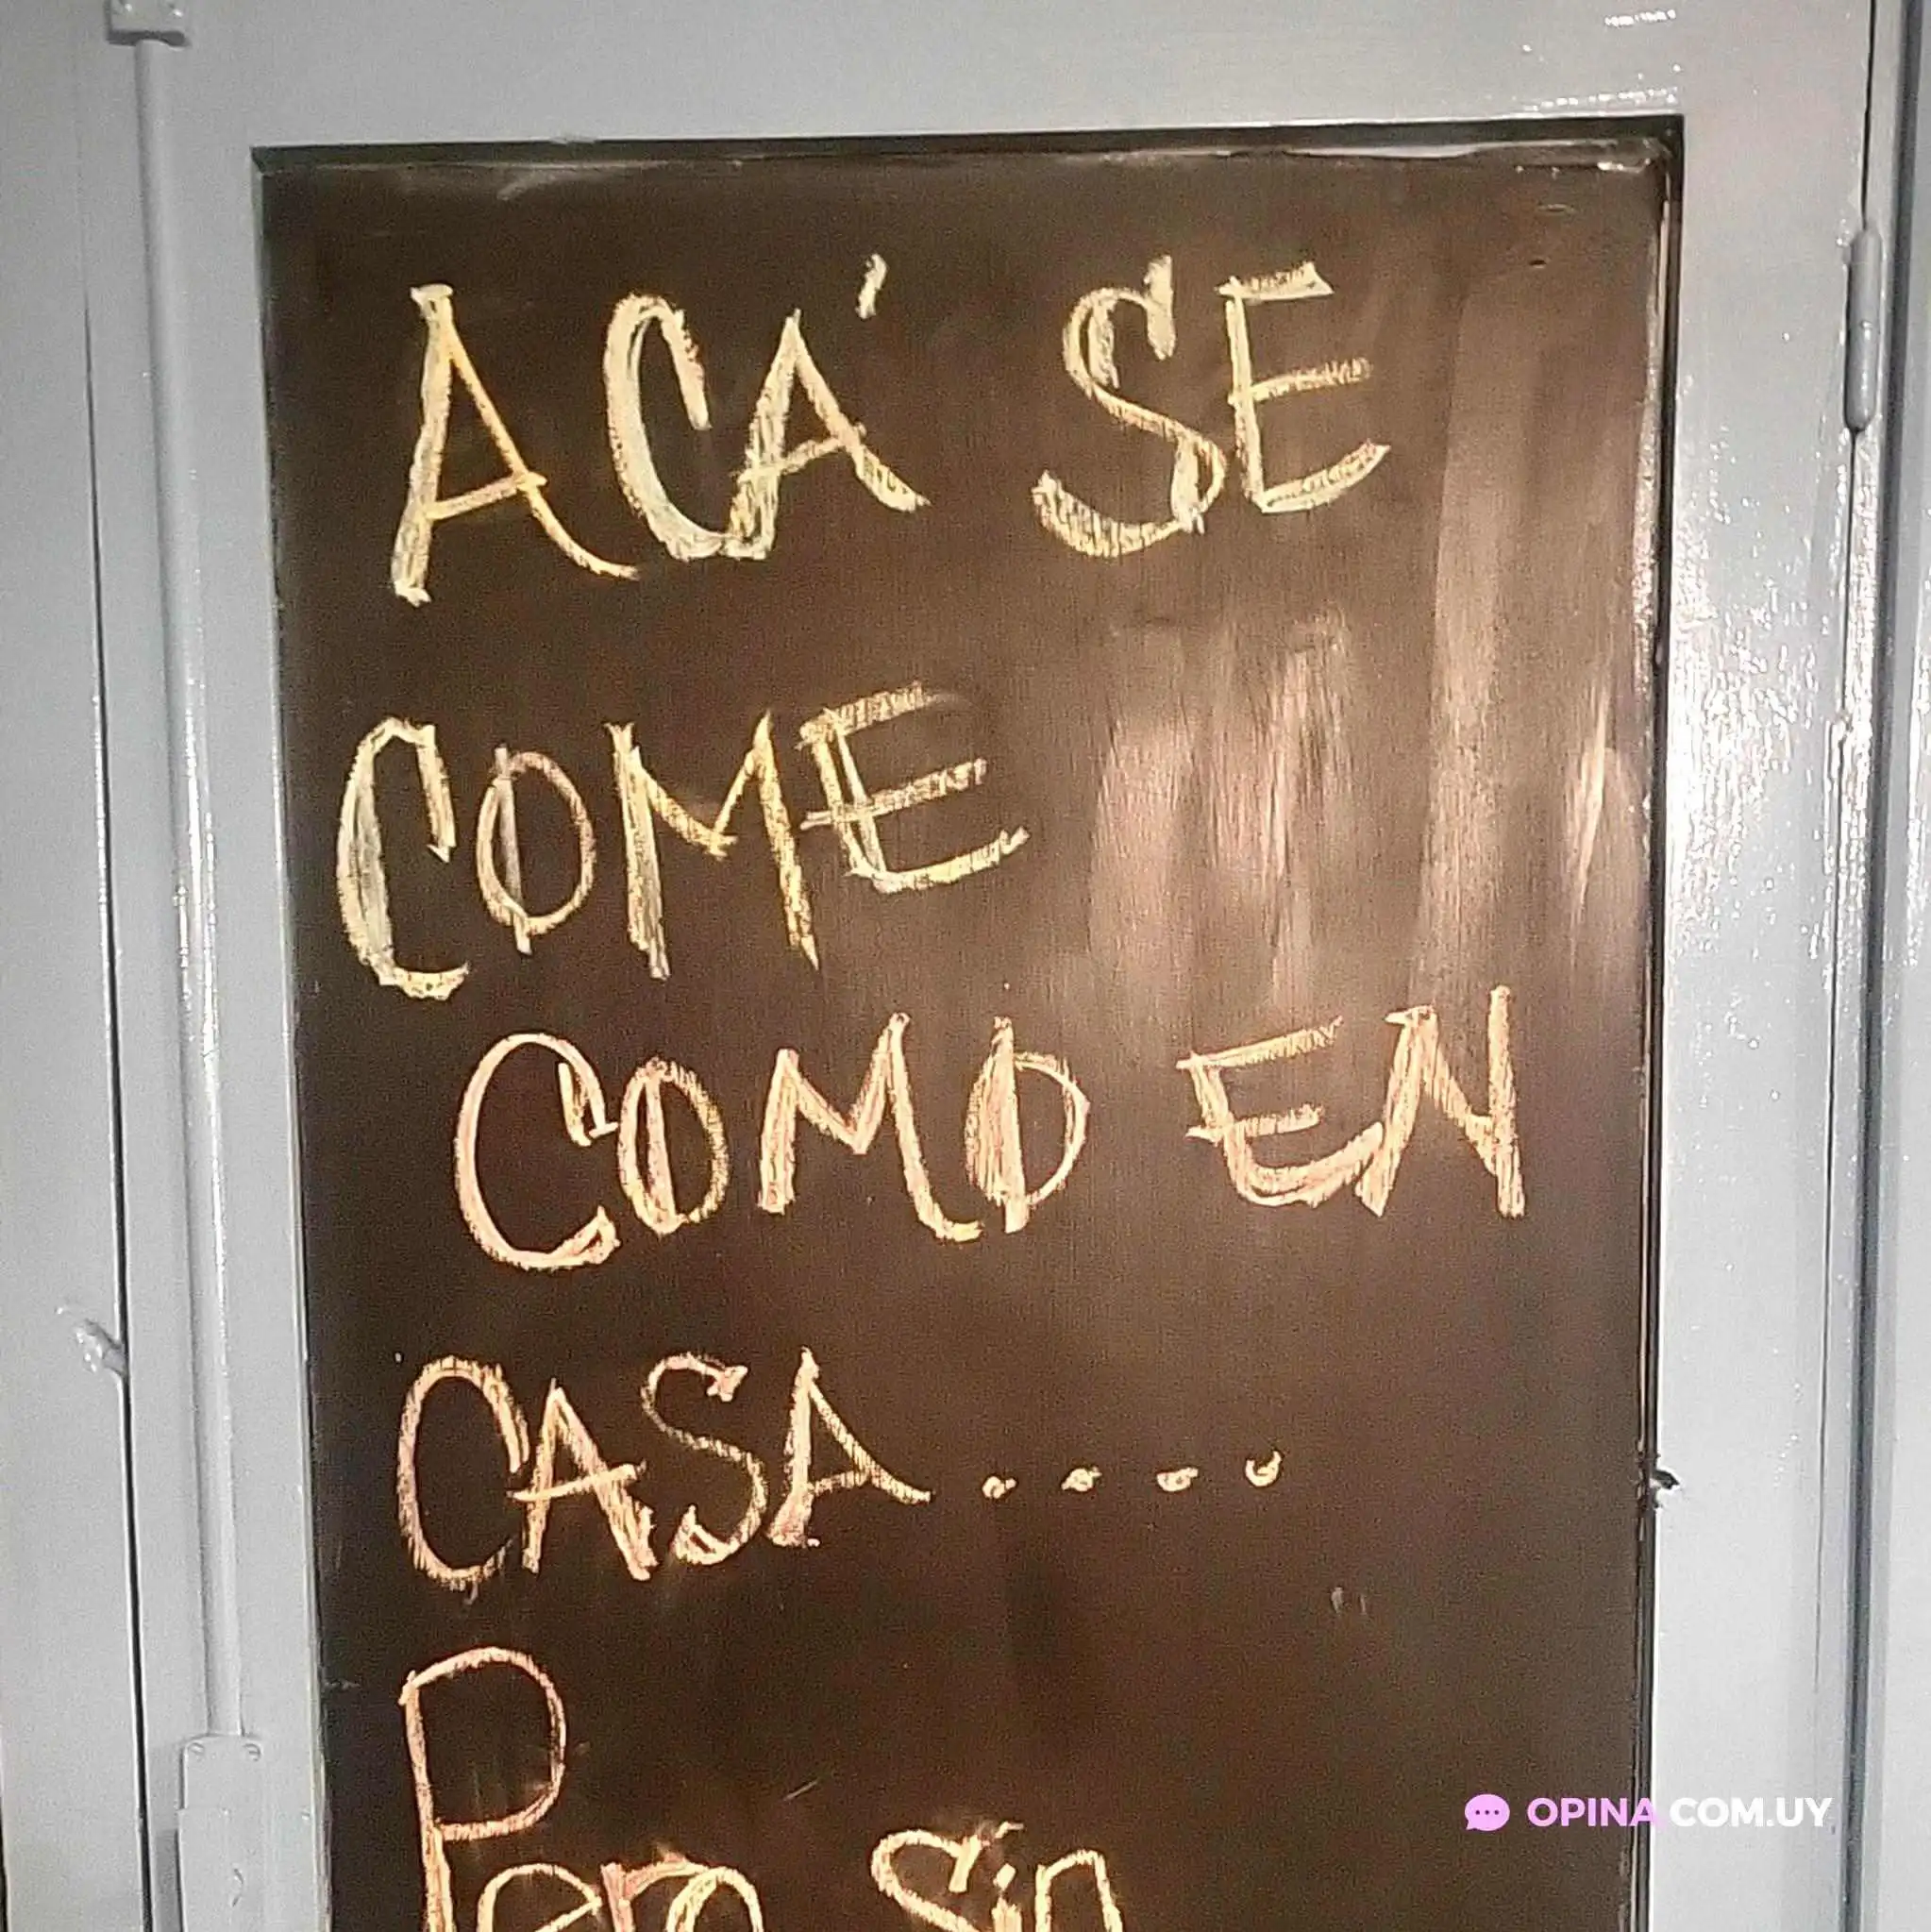 ACÁ SE
COME
COMO EN
CASA....
Pero Sin
OPINA.COM.UY